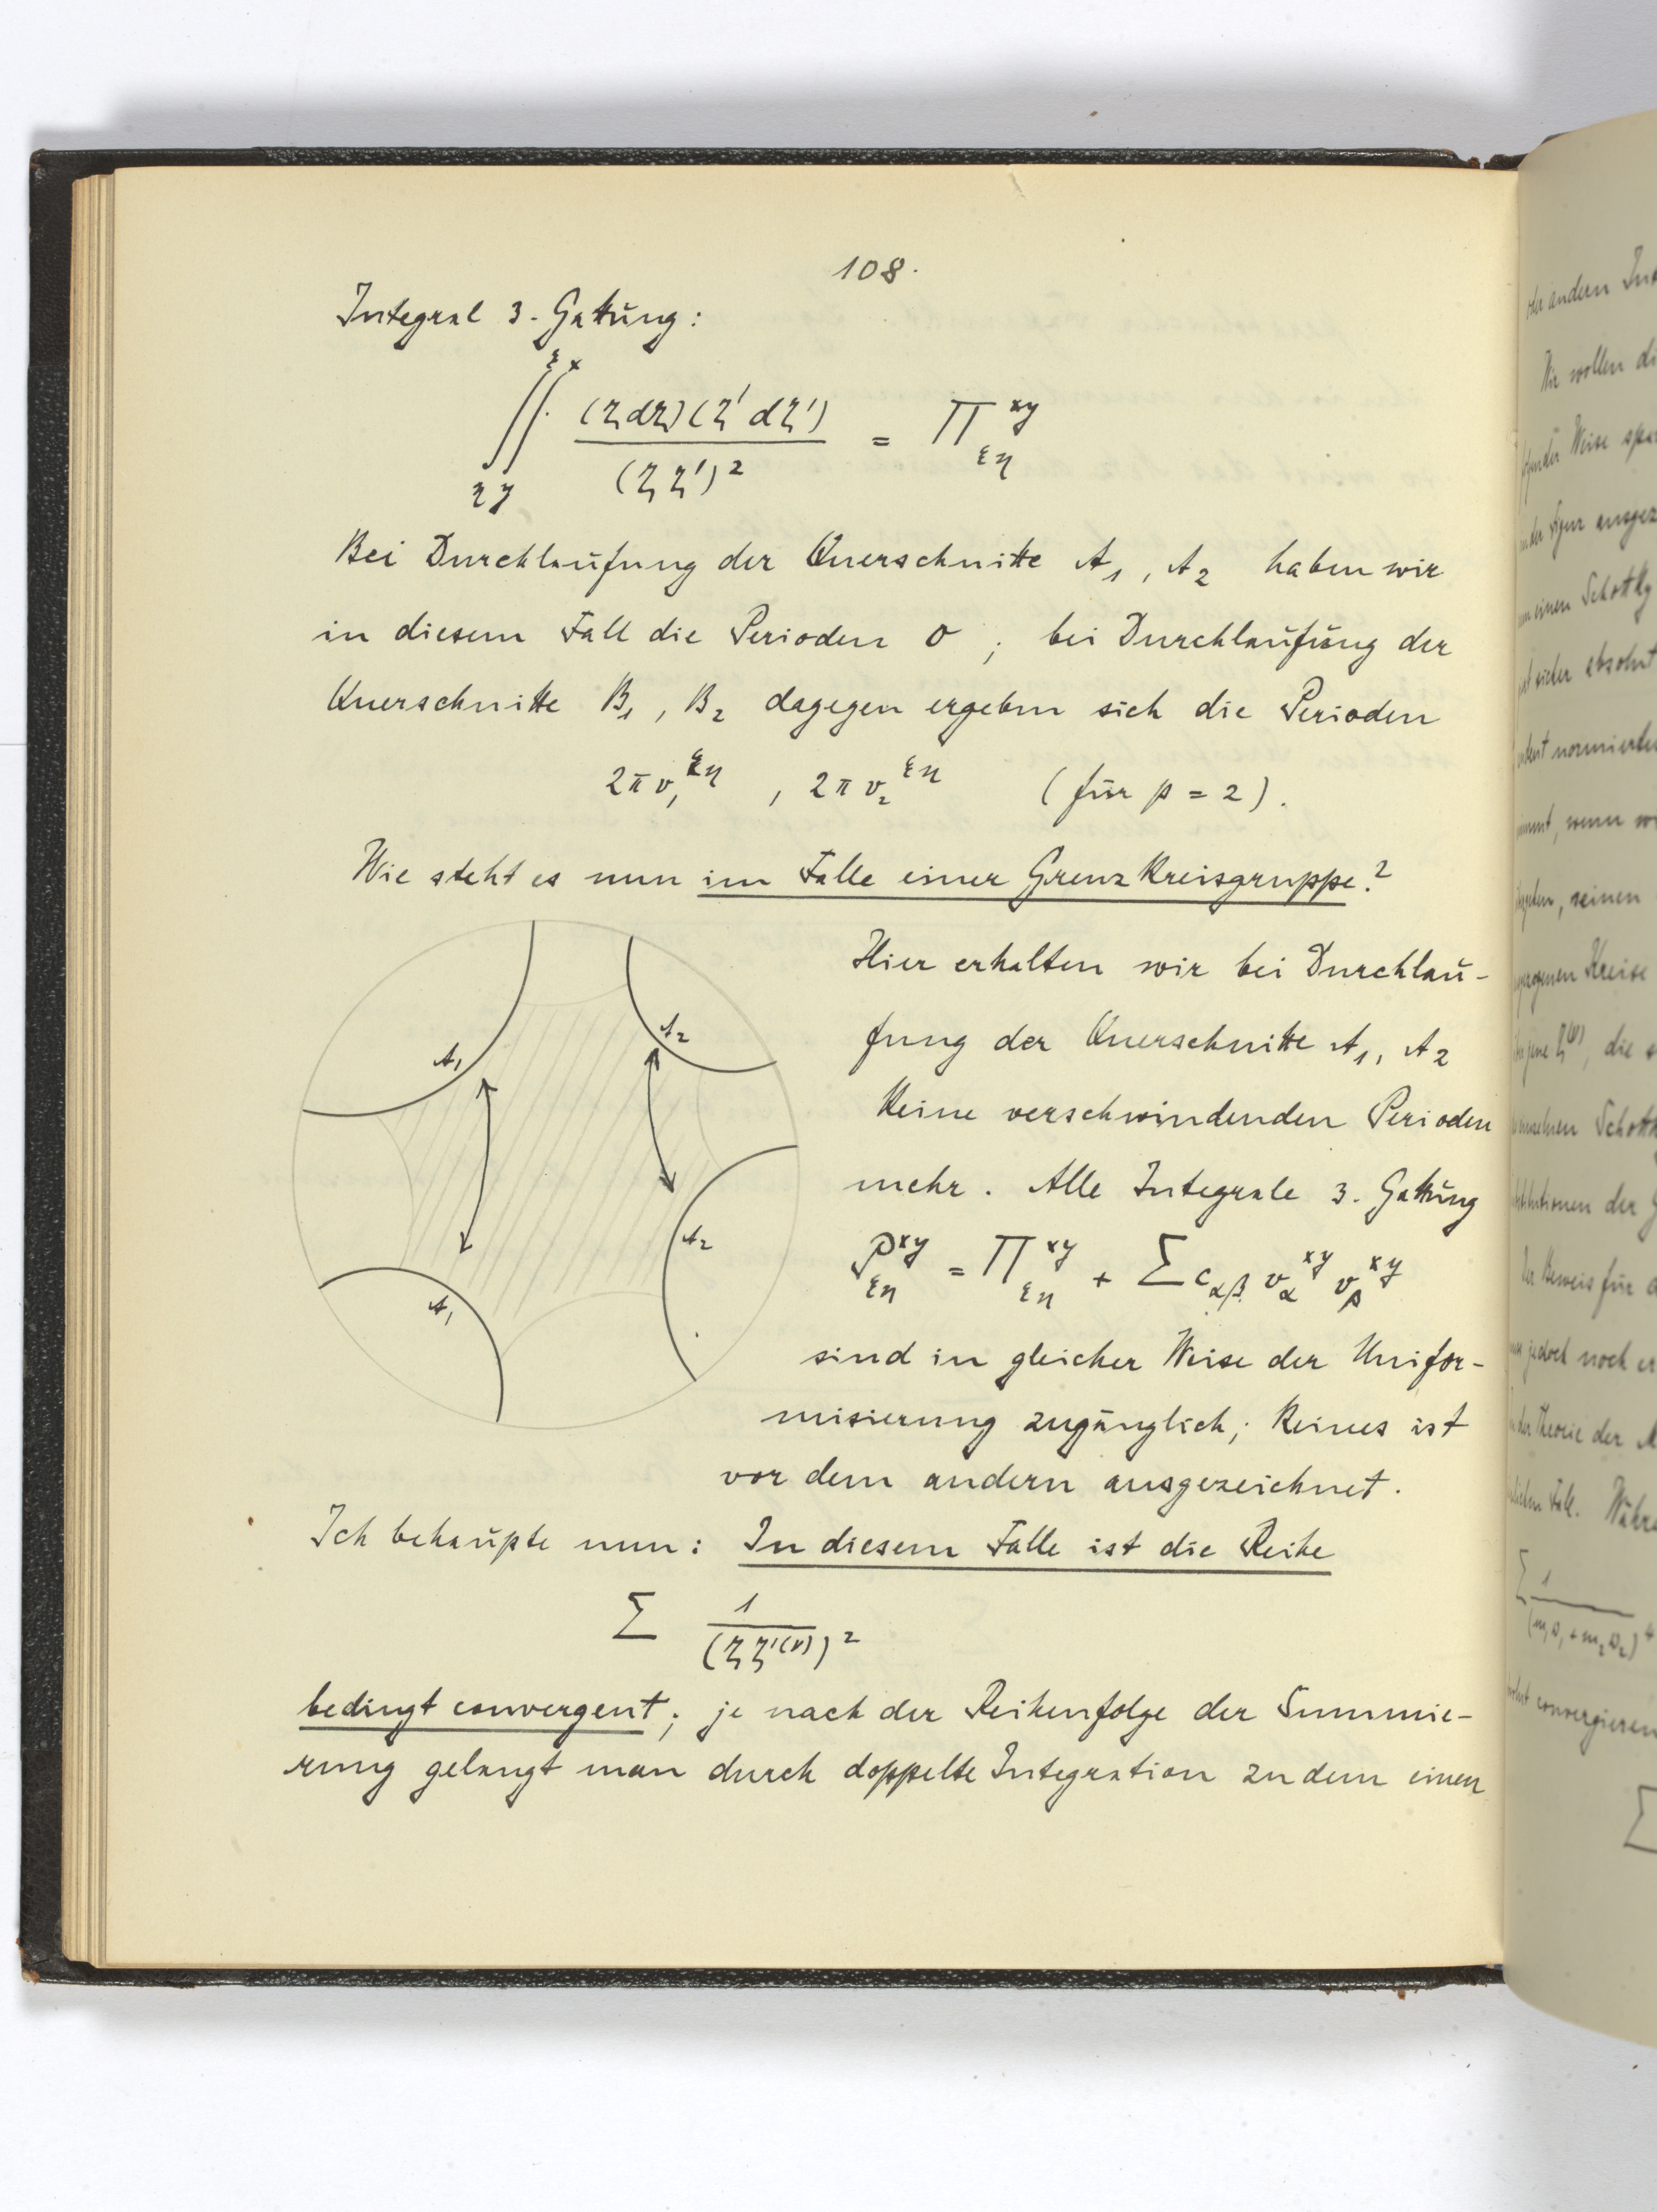 108.
Integral 3. Gattung:
∫∫ (ζdζ)(ζ'dζ') / (ζζ')² = Π^{xy}_{ξη}
Bei Durchlaufung der Querschnitte A₁, A₂ haben wir
in diesem Fall die Perioden 0 ; bei Durchlaufung der
Querschnitte B₁, B₂ dagegen ergeben sich die Perioden
2πv₁^{ξη} , 2πv₂^{ξη} (für p = 2).
Wie steht es nun im Falle einer Grenzkreisgruppe?
A₁
A₂
A₂
A₁
Hier erhalten wir bei Durchlau-
fung der Querschnitte A₁, A₂
keine verschwindenden Perioden
mehr. Alle Integrale 3. Gattung
P^{xy}_{ξη} = Π^{xy}_{ξη} + Σ c_{αβ} v_α^{xy} v_β^{xy}
sind in gleicher Weise der Unifor-
misierung zugänglich; keines ist
vor dem andern ausgezeichnet.
Ich behaupte nun: In diesem Falle ist die Reihe
Σ 1 / (ζζ'^{(ν)})²
bedingt convergent; je nach der Reihenfolge der Summie-
rung gelangt man durch doppelte Integration zu dem einen